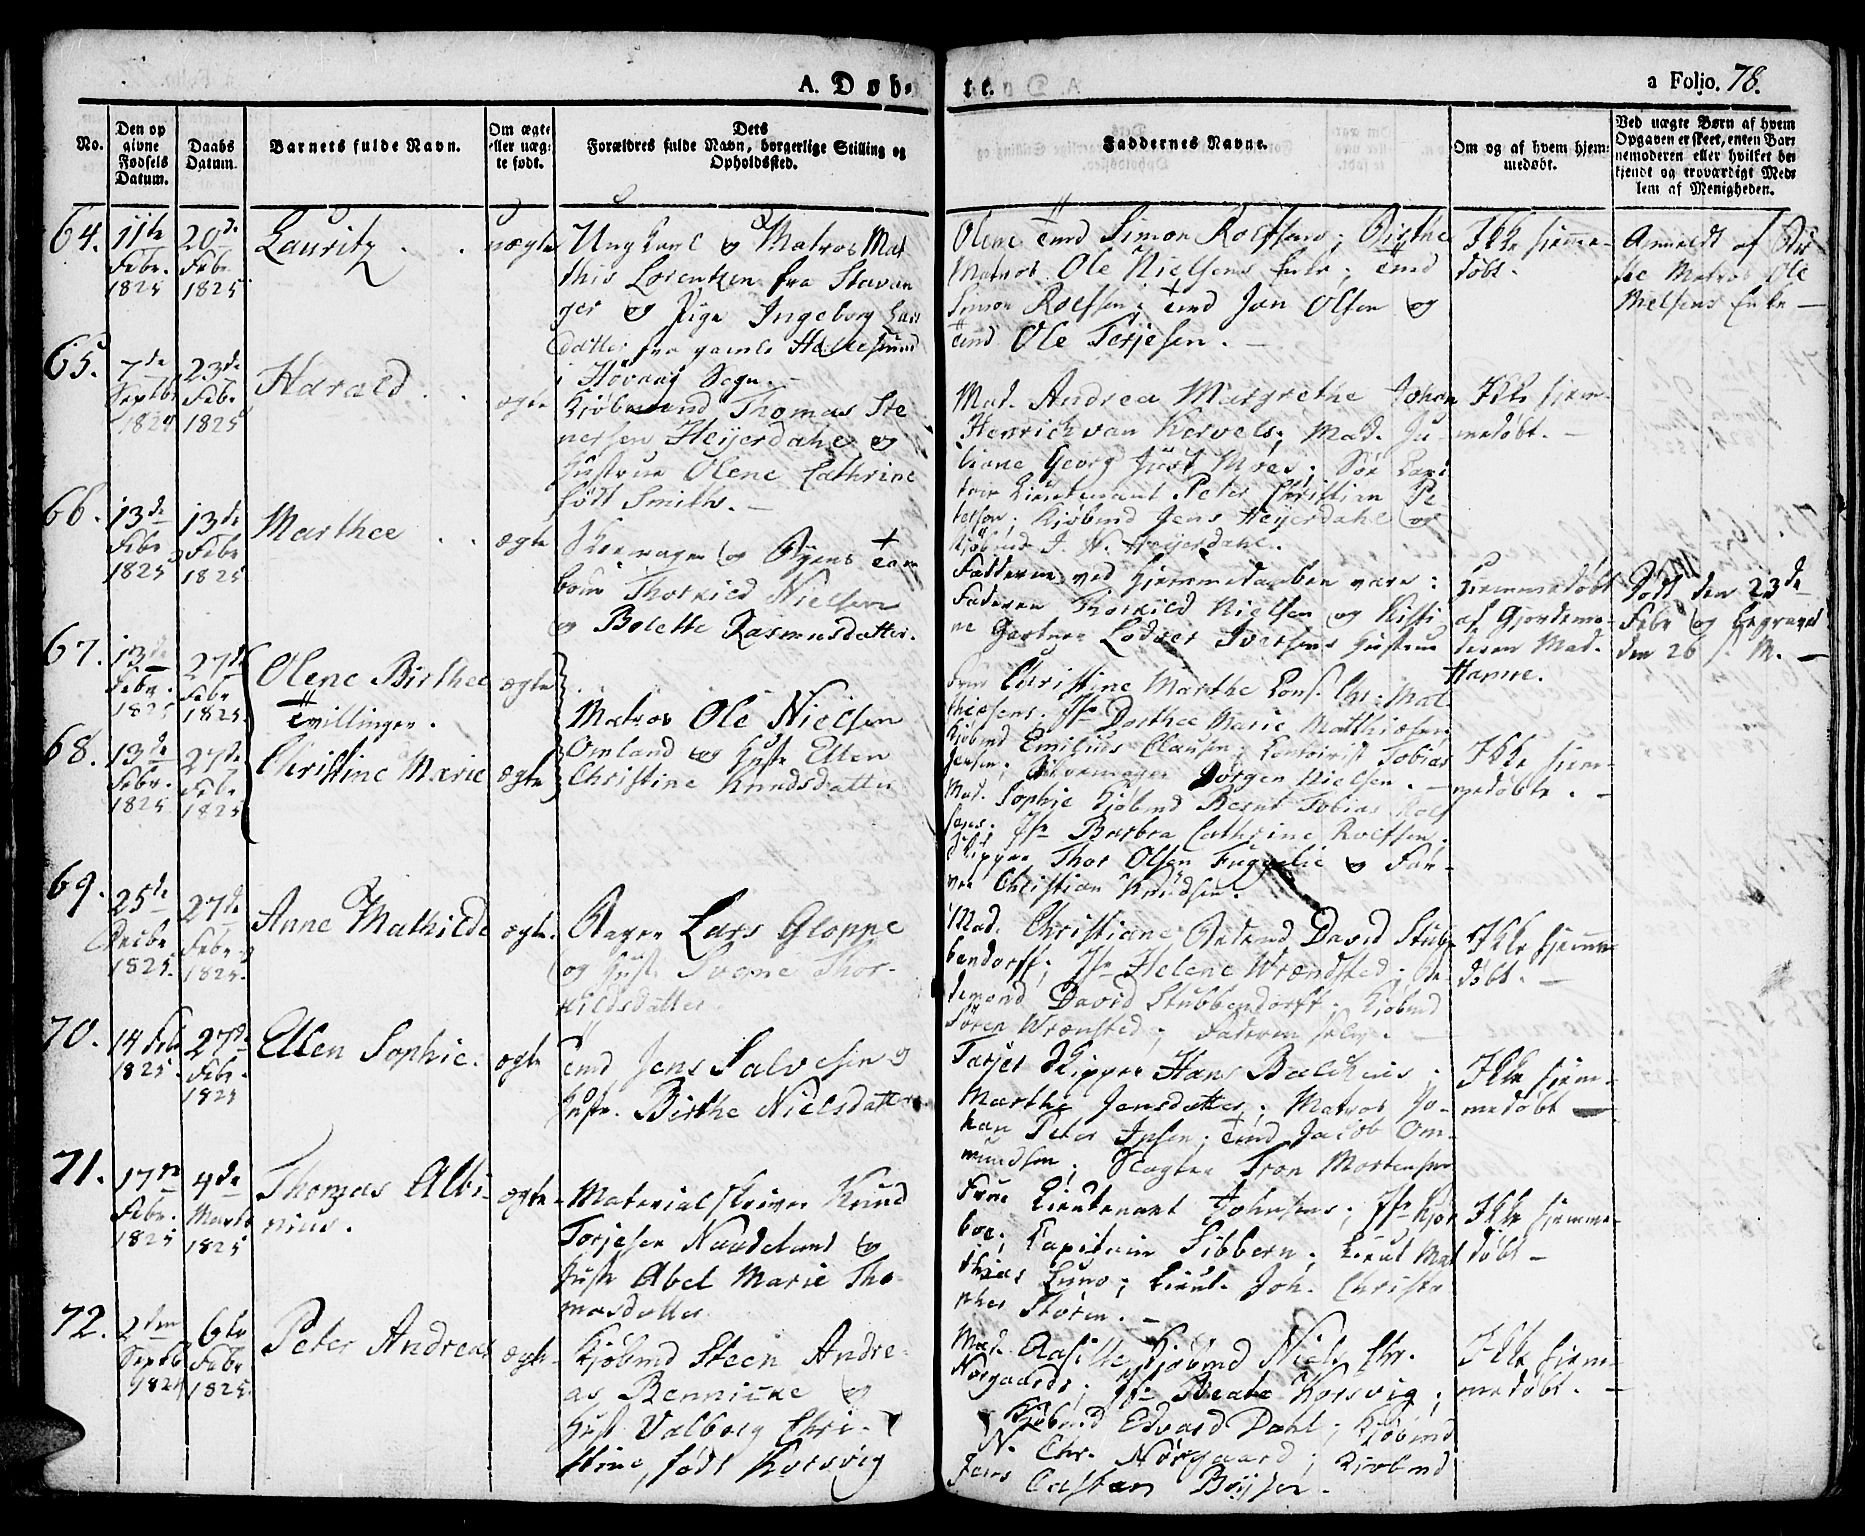 A. Døb-
te.
a Folio. 78.
No.
Den op
givne
Fødsels
Datum.
Daabs
Datum.
Barnets fulde Navn.
Om ægte
eller uæg-
te født.
Dets
Forældres fulde Navn, borgerlige Stilling og
Opholdssted.
Faddernes Navne.
Om og af hvem hjem-
medøbt.
Ved uægte Børn af hvem
Opgaven er skeet, enten Bar-
nemoderen eller hvilket be-
kjendt og troværdigt Med-
lem af Menigheden.
64.
11te
Febr.
1825
20de
Febr
1825
Lauritz
uægte
Ungkarl og Matros Mat
this Lorentzen fra Stavan
ger og Pige Ingeborg Lars
datter fra gamle Hellesund
i Høvaag Sogn.
Olene Tmd Simon Rolfsens; Birthe
Matros Ole Nielsens Enke; Tmd
Simon Rolfsen; Tmd Jan Olsen og
Tmd Ole Terjesen.
Ikke hjemme-
døbt.
Anmeldt af Bir
the Matros Ole
Nielsens Enke
65.
7de
Septbr
1824
23de
Febr
1825
Harald
ægte
Kjøbmand Thomas Ste
nersen Heyerdahl og
Hustrue Olene Cathrine
født Smith.
Mad. Andrea Margrethe Johan
Henrich van Kervels; Mad. Ju-
liane Georg Just Moes; Søe
Lieutenant Peter Christian Pe
tersen; Kjøbmd Jens Heyerdahl og
Kjøbmd J. N. Heyerdahl.
Ikke hjem-
medøbt.
66.
13de
Febr
1825
13de
Febr
1825
Marthea
ægte
og Byens Tam
bour Thorkild Nielsen
og Bolette Rasmusdatter.
Fadderne ved Hjemmedaaben vare:
Faderen Thorkild Nielsen og Kisti
ne Gartner Lodver Iversens Hustrue
Hjemmedøbt
af Gjordemo-
deren Mad.
Hanne.
Død den 23de
Febr og begravet
den 26 s. M.
67.
13de
Febr.
1825
27de
Febr
1825.
Olene Birthea
Tvillinger.
ægte
Matros Ole Nielsen
Omland og Hustr Ellen
Christine Knudsdatter
Christine Marthe Cons. Chr. Mat
thiesens. Jfr Dorthea Marie Matthiesen
Kjøbmd Emilius Clausen; Contoirist Tobias
Jensen; Jørgen Nielsen.
68.
13de
Febr.
1825
27de
Febr
1825
Christine Marie
ægte
Mad. Sophie Kjøbmd Bernt Tobias Rolf
sens. Jfr Barbra Cathrine Rolfsen;
Skipper Thor Olsen Fuglelie og Far-
ver Christian Knudsen.
Ikke hjem-
medøbte.
69.
25de
Decbr
1825.
27de
Febr
1825.
Anne Mathilde
ægte.
Bager Lars Gloppe
og Hustr. Svane Thor-
kildsdatter
Mad. Christiane David Stub
bendorff; Jfr Helene Wrændsted;
David Stubbendorff. Kjøbmd
Søren Wrænsted; Faderen selv.
Ikke hjemme
døbt.
70.
14 Febr
1825.
27de
Febr.
1825
Ellen Sophie.
ægte
Tmd Jens Salvesen og
Hustr. Birthe Nielsdatter
Skipper Hans Balchens;
Marthe Jensdatter; Matros Jo-
han Peter Ipsen; Tmd Jacob Om-
mundsen; Slagter Tron Mortensen
Ikke hjem-
medøbt
71.
17de
Febr.
1825
4de
Marts
1825
Thomas Albi-
nius.
ægte
Materialskriver Knud
Torjesen Naadeland og
Hustr Abel Marie Tho-
masdatter
Frue Lieutenant Johnsens; Jfr Kjør
boe; Capitain Sibbern; Lieut Mat
thias Lund; Lieut. Joh. Christo
pher Støren.
Ikke hjemme-
døbt
72.
2den
Septbr
1824
6te
Febr
1825.
Peter Andreas
ægte
Kjøbmd Steen Andre-
as Bennicke og
Hust Valborg Chri-
stine, født Korsvig
Mad. Kjøbmd Niels Chr.
Nørgaards; Jfr Beate Korsvig;
Kjøbmd Edvard Dahl; Kjøbmd
N. Chr. Nørgaard; Kjøbmd
Jens Carsten Boysen.
Ikke hjem-
medøbt.